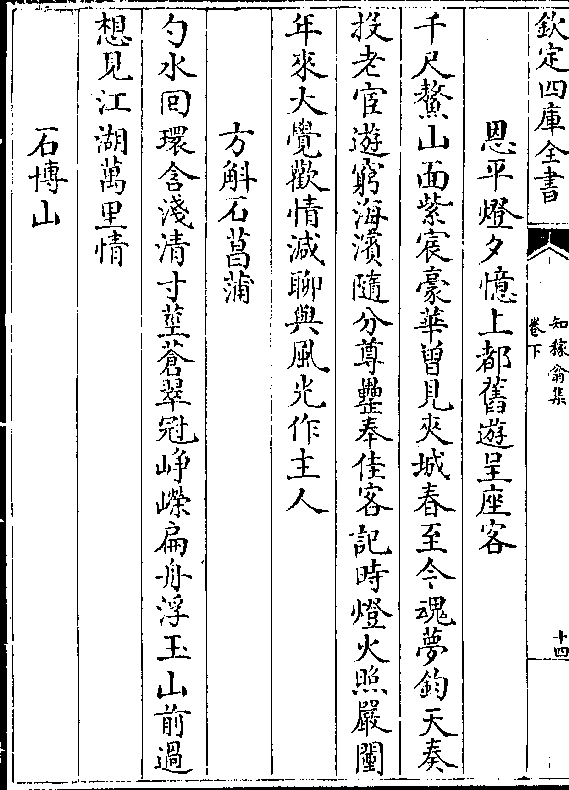 欽定四庫全書
知稼翁集
卷下
十四
恩平燈夕憶上都舊遊呈座客
千尺鰲山面紫宸豪華曾見夾城春至今魂夢鈞天奏
投老宦遊窮海濱隨分尊罍奉佳客記時燈火照嚴闉
年來大覺歡情減聊與風光作主人
方斛石菖蒲
勺水回環含淺清寸莖蒼翠冠崢嶸扁舟浮玉山前過
想見江湖萬里情
石博山